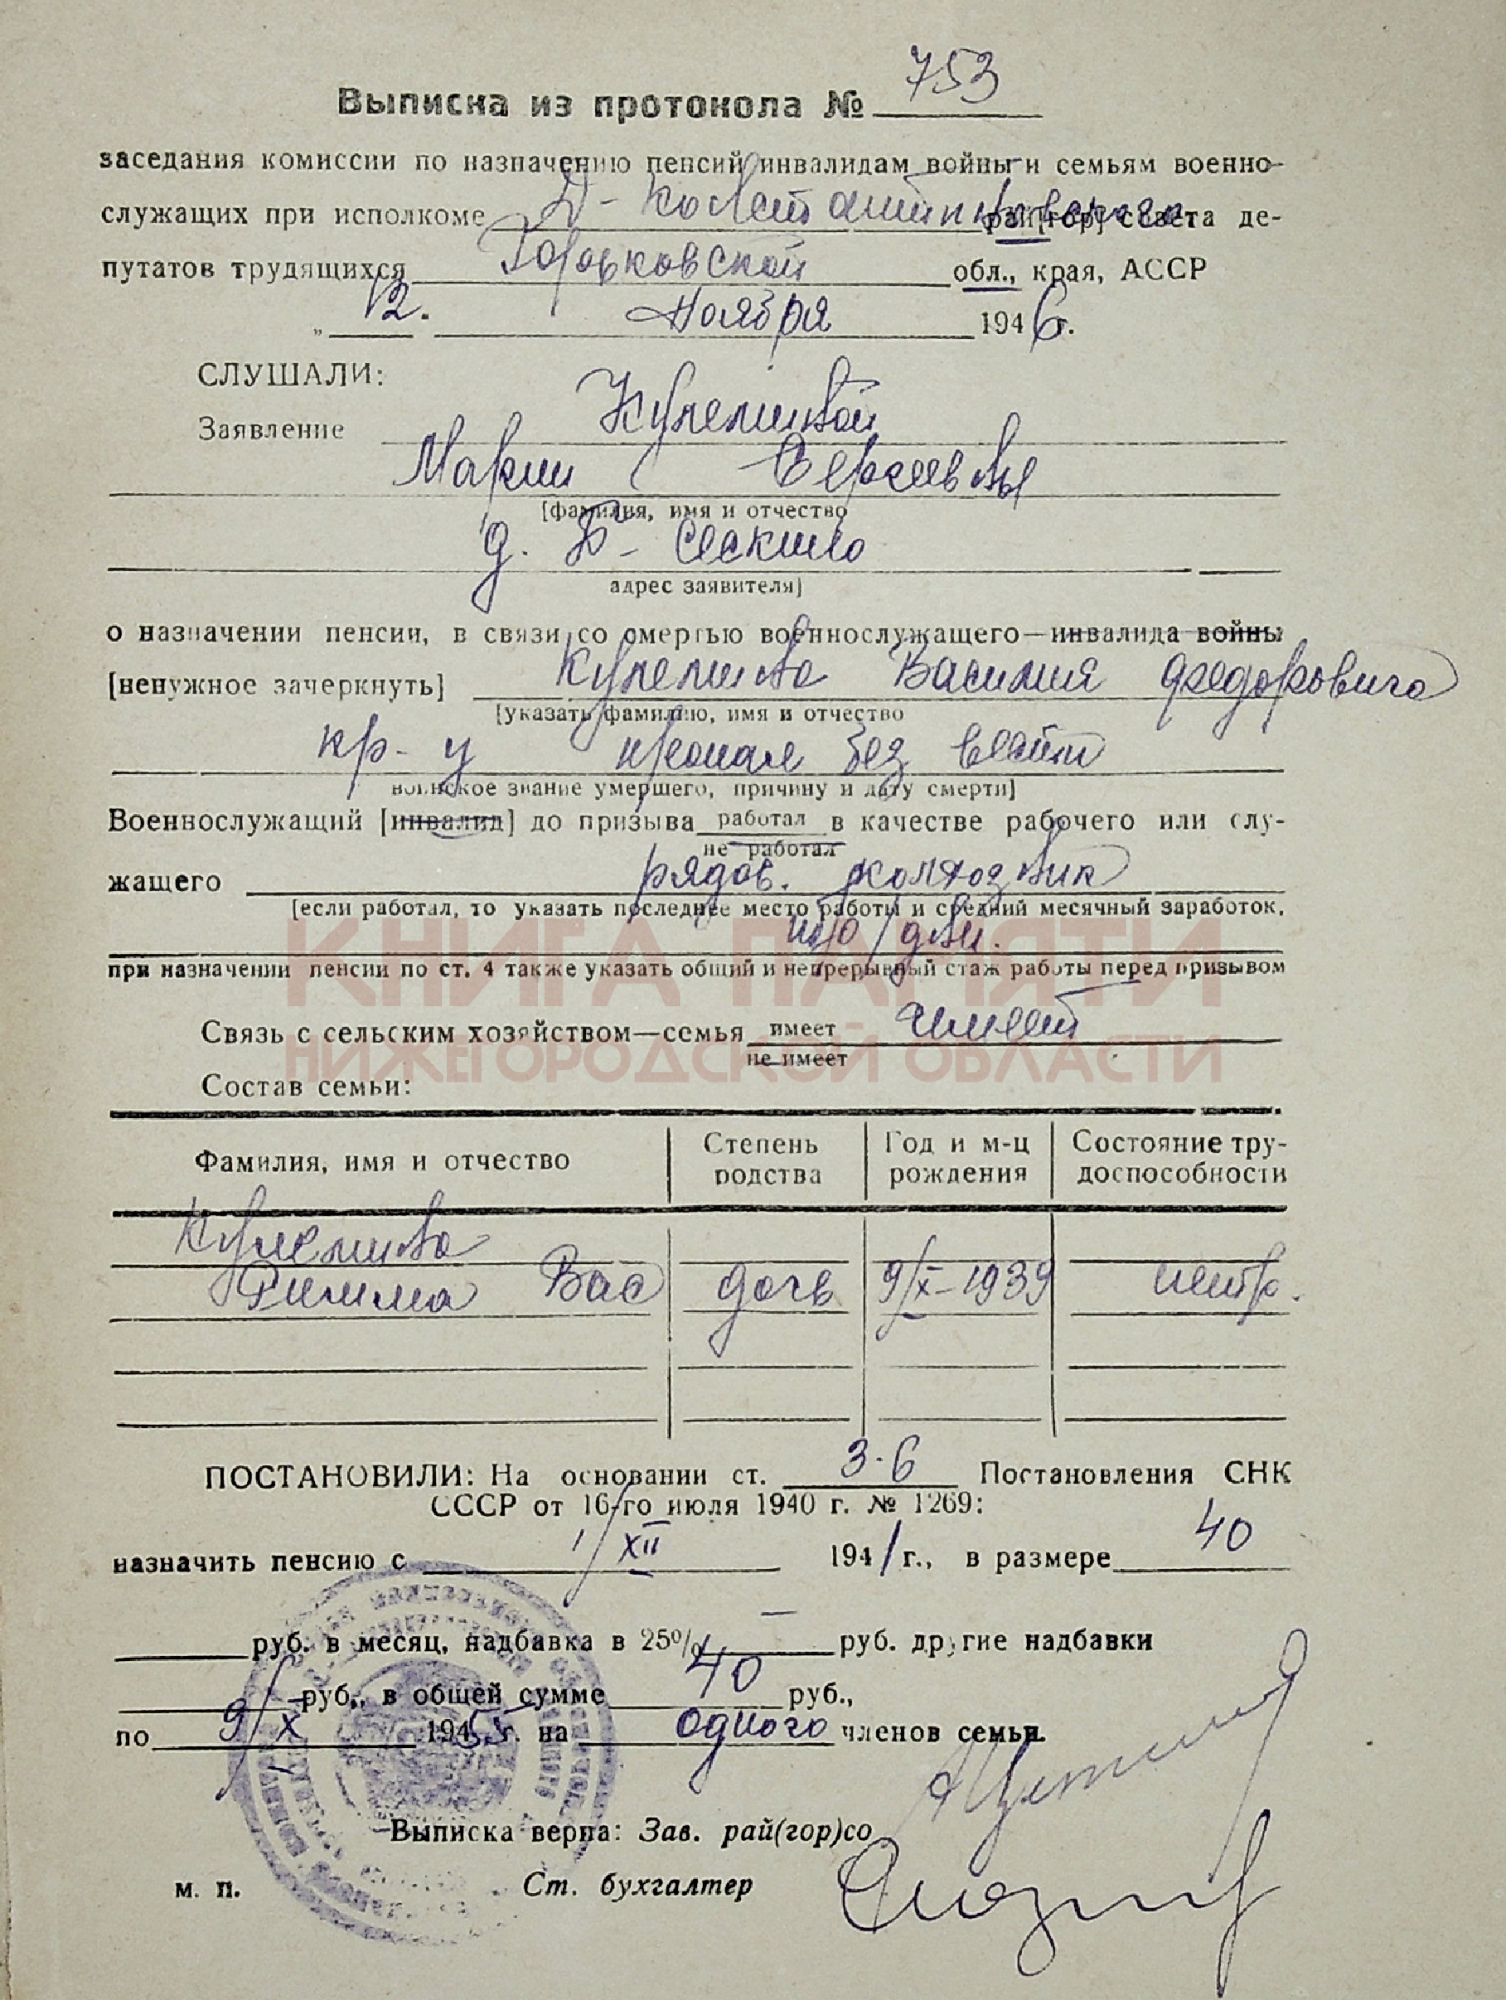 Выписка из протокола № 753
заседания комиссии по назначению пенсий инвалидам войны и семьям военно-
служащих при исполкоме Д-Константиновского рай[гор] совета де-
путатов трудящихся Горьковской обл., края, АССР
„ 12. ноября 1946 г.
СЛУШАЛИ:
Заявление
Марии Сергеевны
[фамилия, имя и отчество
д. Б-Сескино
адрес заявителя]
о назначении пенсии, в связи со смертью военнослужащего—инвалида войны
[ненужное зачеркнуть] Василия Федоровича
[указать фамилию, имя и отчество
кр-ц пропал без вести
воинское звание умершего, причину и дату смерти]
Военнослужащий [инвалид] до призыва работал в качестве рабочего или слу-
не работал
жащего рядов. колхозник
[если работал, то указать последнее место работы и средний месячный заработок,
при назначении пенсии по ст. 4 также указать общий и непрерывный стаж работы перед призывом
КНИГА ПАМЯТИ
НИЖЕГОРОДСКОЙ ОБЛАСТИ
Связь с сельским хозяйством—семья имеет имеет
не имеет
Состав семьи:
Фамилия, имя и отчество Степень родства Год и м-ц рождения Состояние тру-доспособности
Римма Вас дочь 9/X-1939 нетр.
ПОСТАНОВИЛИ: На основании ст. 3-6 Постановления СНК
СССР от 16-го июля 1940 г. № 1269:
назначить пенсию с 1/XII 1941 г., в размере 40
руб. в месяц, надбавка в 25% — руб. другие надбавки
руб., в общей сумме 40 руб.,
по 9/X 1955 г. на одного членов семьи.
Выписка верна: Зав. рай(гор)со
м. п. Ст. бухгалтер